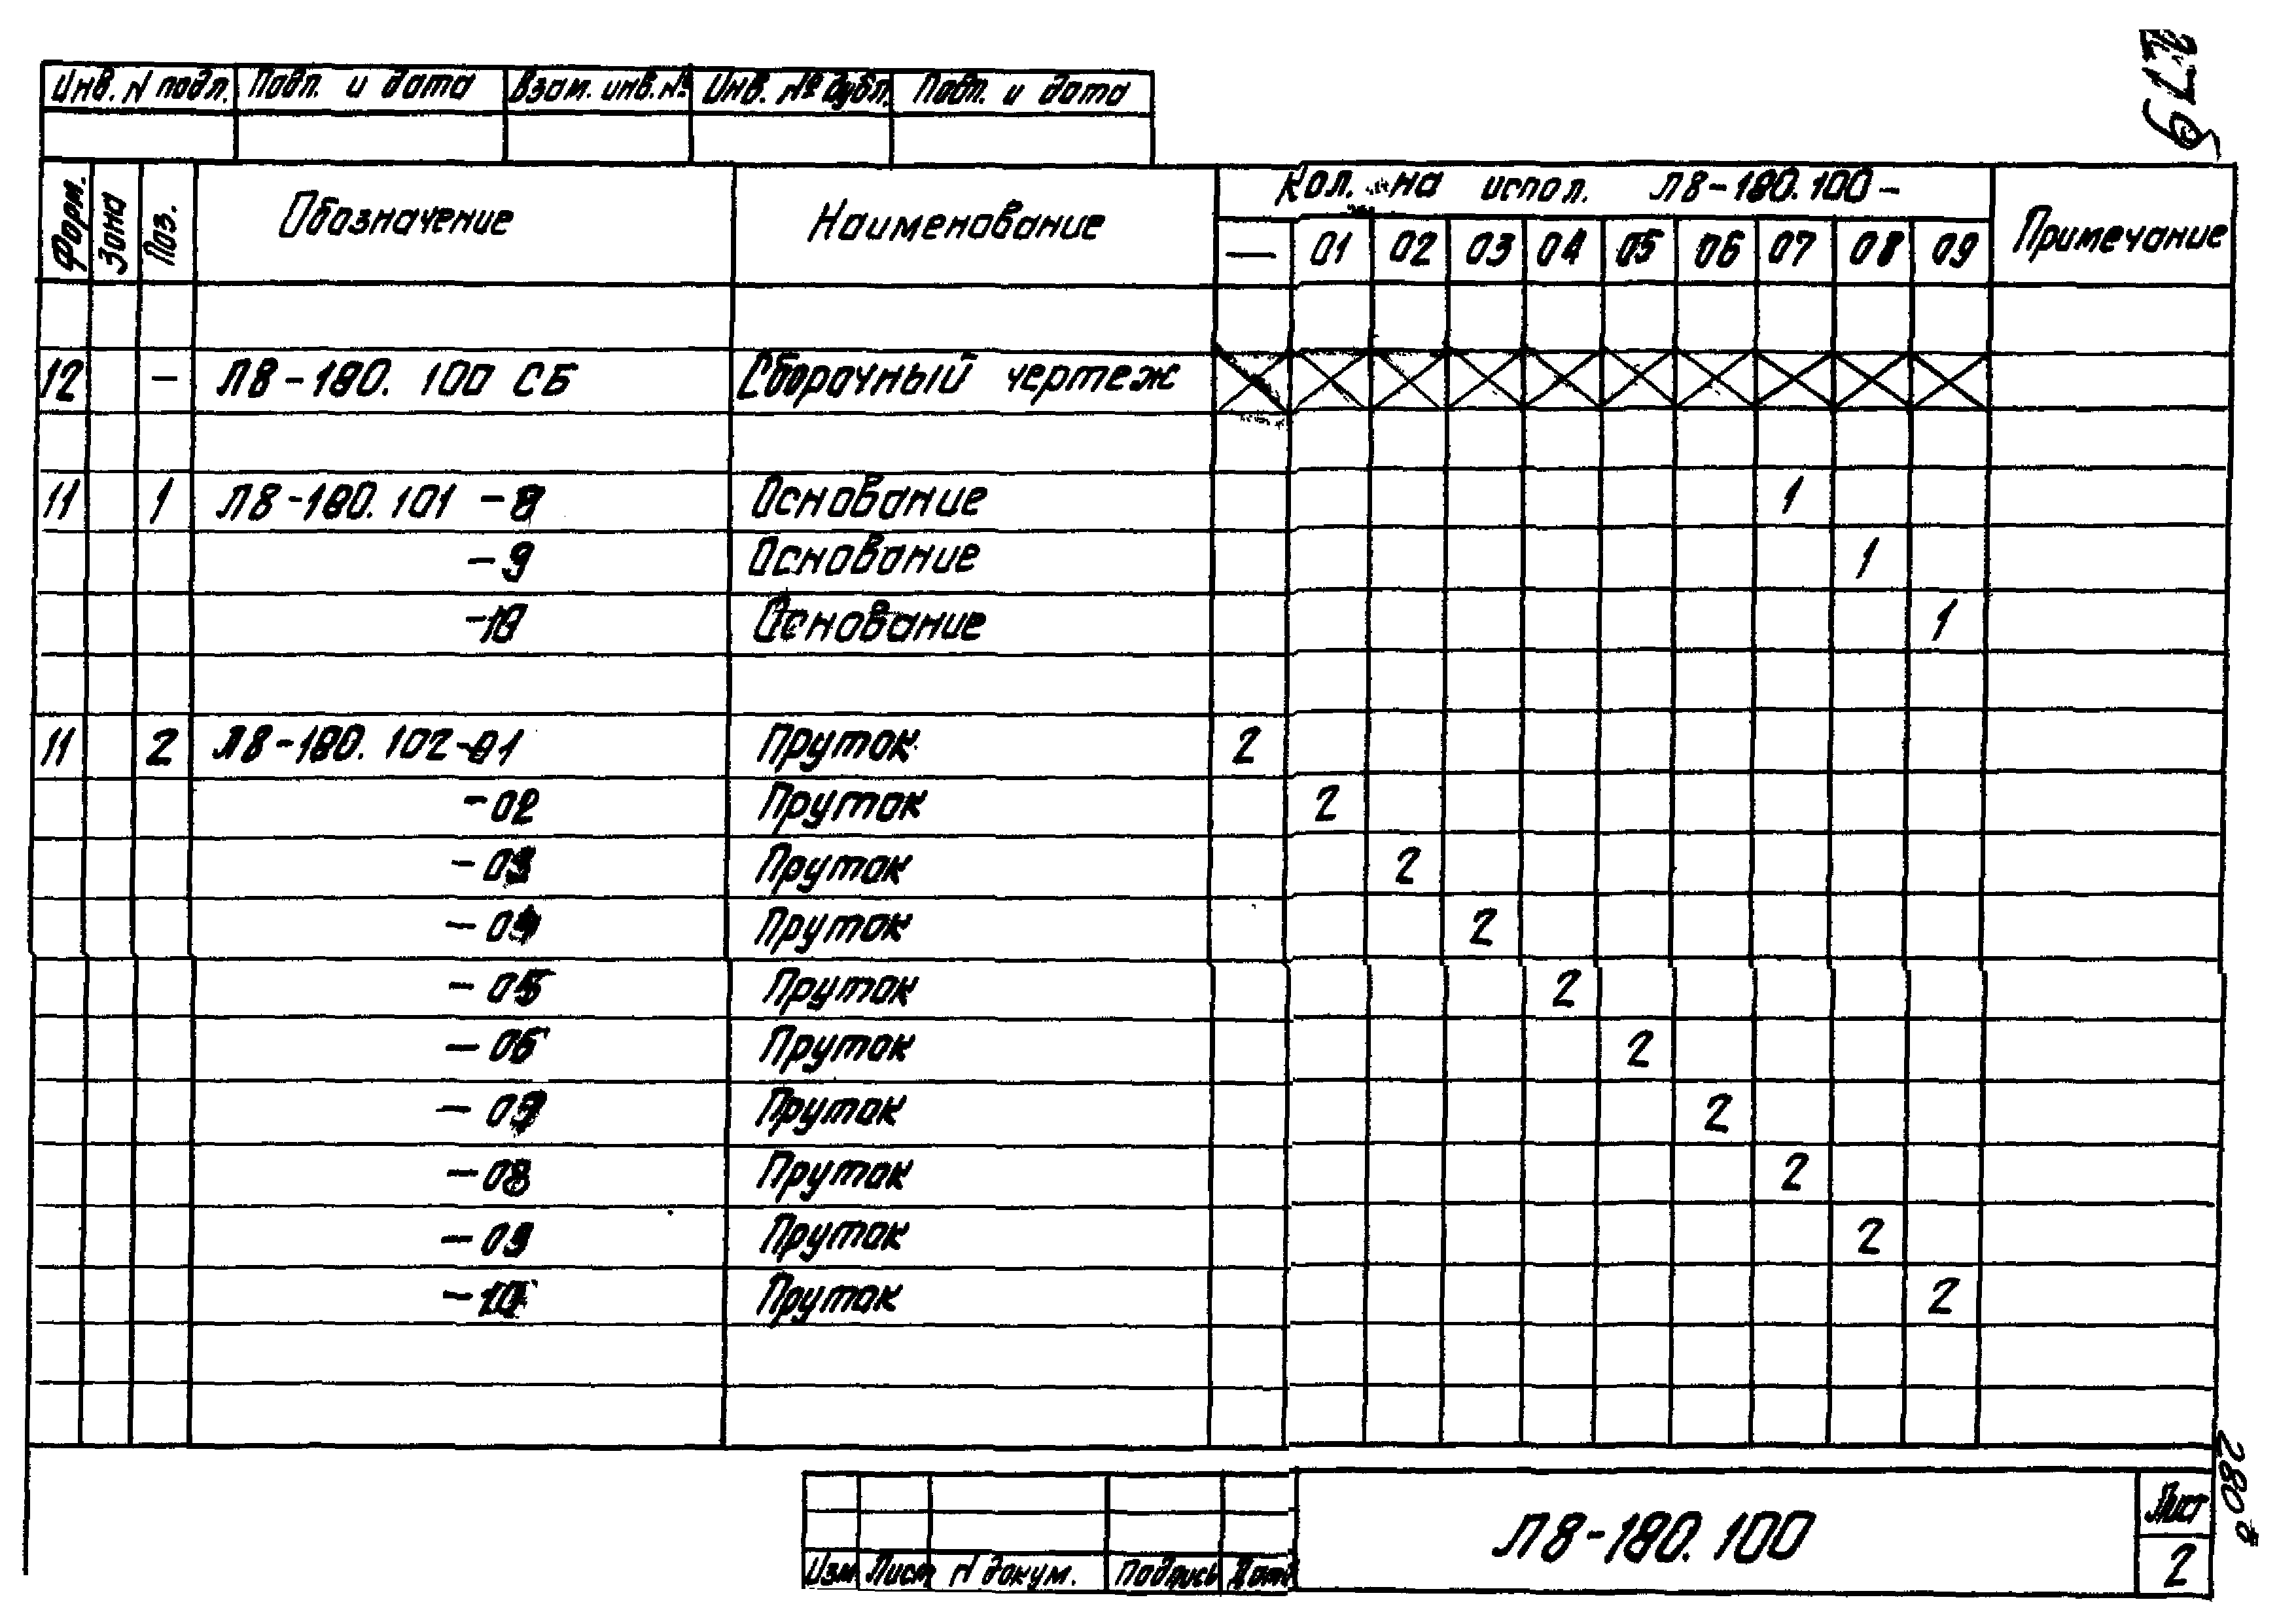 Инв. N подл. Подп. и дата Взам. инв. № Инв. № дубл. Подп. и дата
Форм. Зона Поз. Обозначение Наименование Кол. на испол. Л8-180.100- Примечание
— 01 02 03 04 05 06 07 08 09
12 — Л8-180. 100 СБ Сборочный чертеж
11 1 Л8-180. 101 -8 Основание 1
-9 Основание 1
-10 Основание 1
11 2 Л8-180. 102-01 Пруток 2
-02 Пруток 2
-03 Пруток 2
-04 Пруток 2
-05 Пруток 2
-06 Пруток 2
-07 Пруток 2
-08 Пруток 2
-09 Пруток 2
-10 Пруток 2
Изм Лист N докум. Подпись Дата
Л8-180. 100
Лист
2